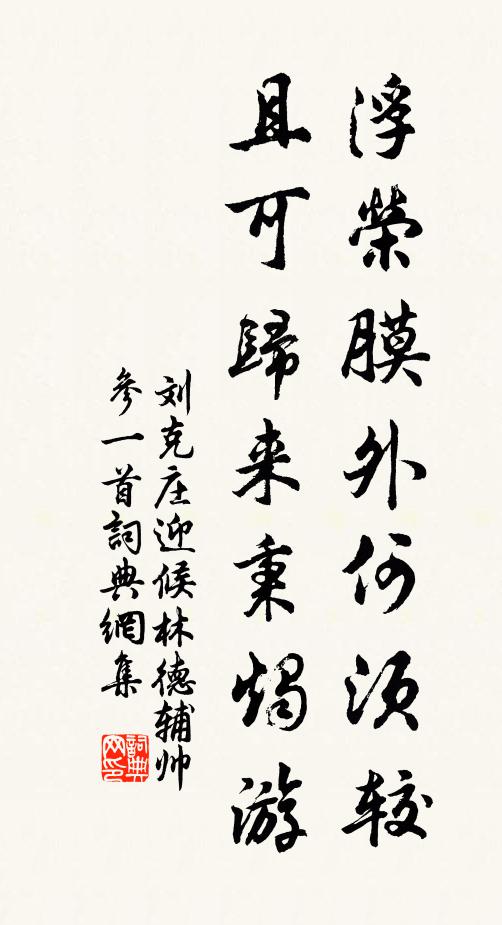 浮榮膜外何须较
且可歸来秉燭游
刘克庄迎候林德辅帅
参一首詞典網集
詞典网印